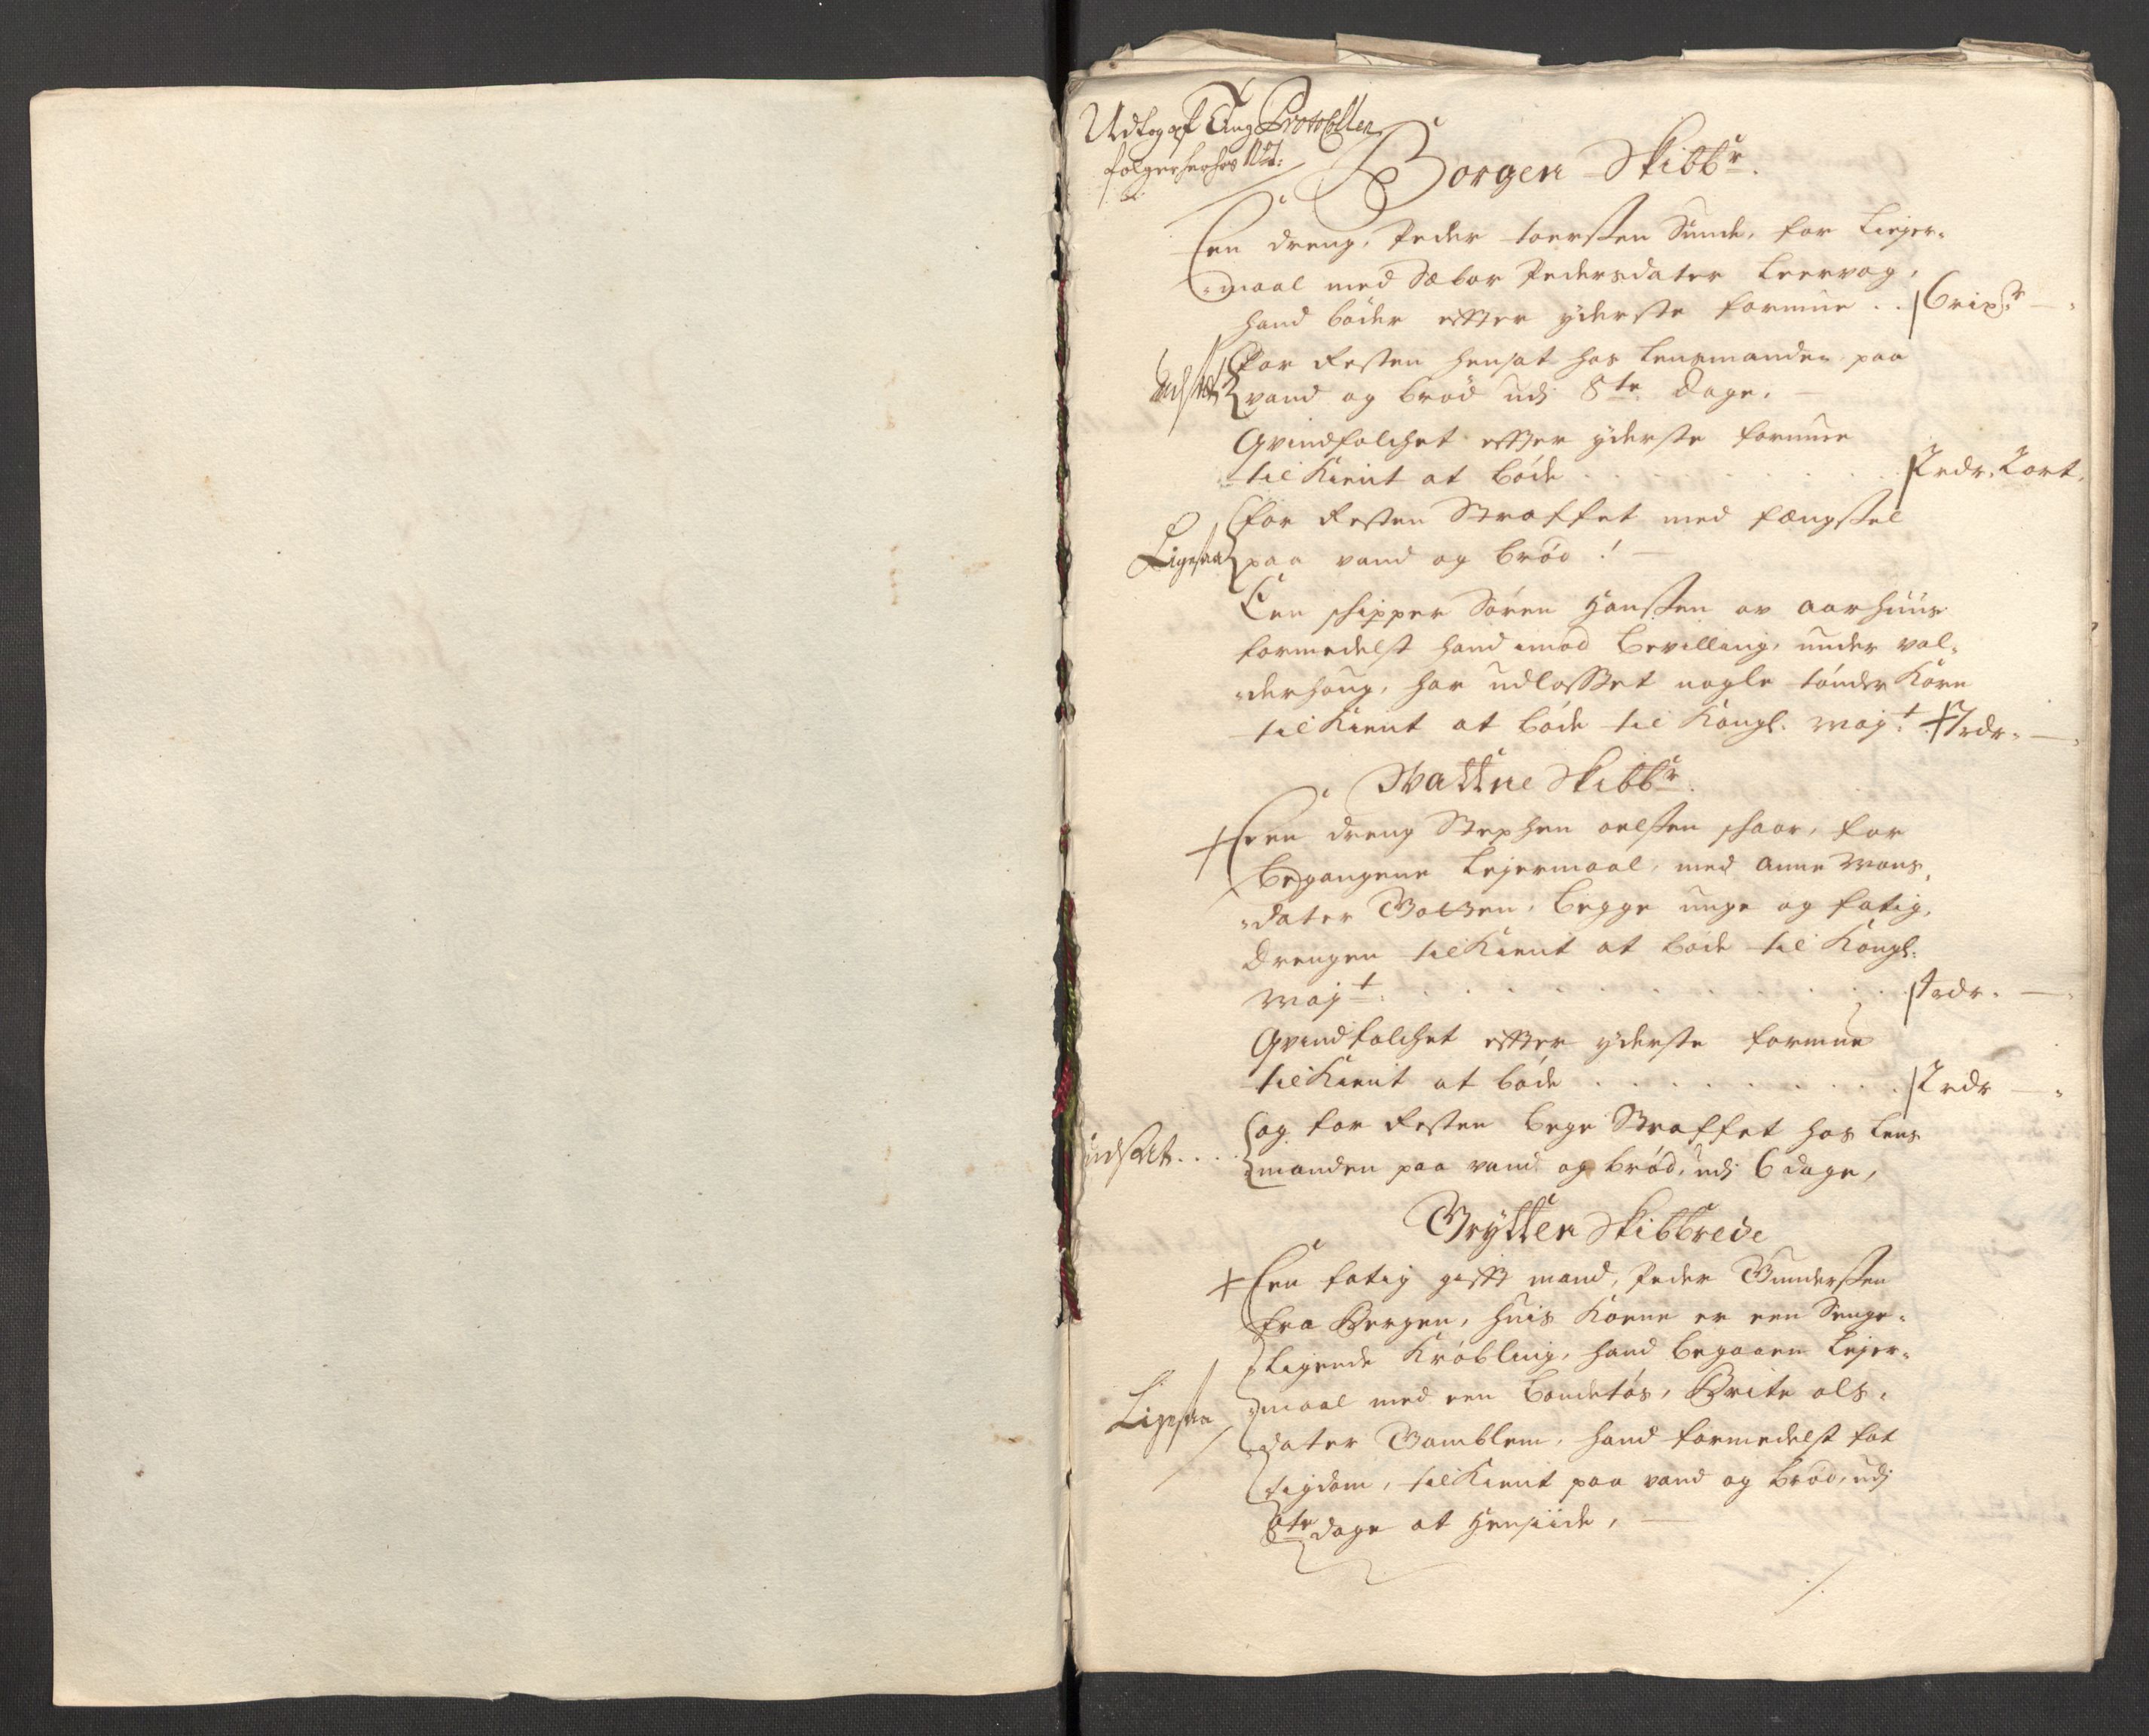 Udtog af Ting Protocollen
følger herhos
Borgen Skibbr.
Een dreng, Peder toersten Sunde, for Liejer-
maal med Pedersdater Leervog,
hand böder efter yderste formue . . 6 rixdr —
Indsadt
For Resten hensat hos Lensmanden paa
vand og bröd udj 8te dage. —
Qvindfolchet efter yderste formue
til Kient at böde . . . . 2 rdr. 2 ort.
Ligesaa
for Resten Straffet med fængsel
paa vand og bröd! —
Een schipper Sören Hansten av aarhuus
formedelst hand imod bevilling, under val-
derhoug, har udlosset nogle tönder Korn
til Kient at böde til Kongl. Mayt. 7 rdr. —
Vattne Skibbr.
Een dreng Stephen oelsten schaar, for
begangene Lejermaal, med Anne Mons-
dater begge unge og fatig,
Drengen til Kient at böde til Kongl:
Mayt: . . . . rdr. —
Qvindfolchet efter yderste formue
til Kient at böde . . . . 2 rdr —
indsadt. . . .
og for Resten bege Straffet hos Lens
manden paa vand og bröd, udj 6 dage,
Grytten Skibbrede
Een fatig gift mand, Peder Gundersten
fra Bergen, huis Kone er een Senge-
ligende Kröbling, hand begaaen Lejer-
Ligesaa
maal med een bondetös, Brite ols-
dater Gamblem, hand formedelst fat
tigdom, til Kient paa vand og bröd, udj
8te dage at hensiide, —